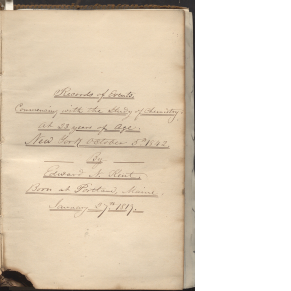 Records of Events,
Commencing with the Study of Chemistry
At 23 years of Age.
New York October 5th 1842.
By
Edward N. Kent,
Born at Portland, Maine.
January 27th 1819.